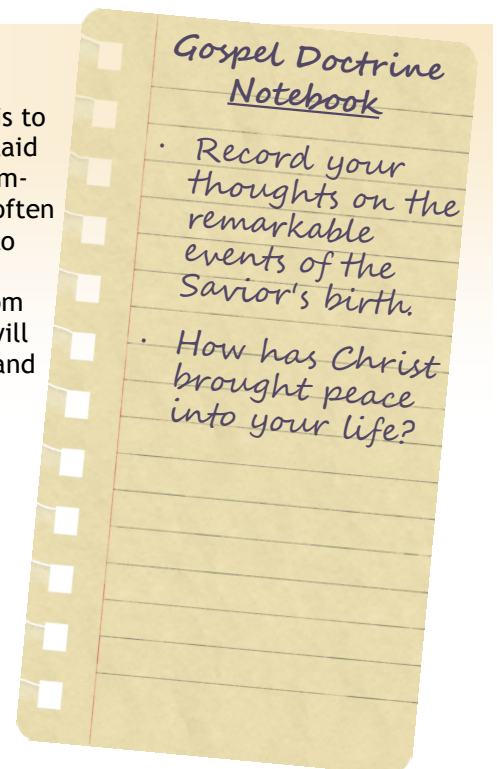 is to
aid
m-
often
to
om
will
and
Gospel Doctrine
Notebook
· Record your
thoughts on the
remarkable
events of the
Savior's birth.
· How has Christ
brought peace
into your life?